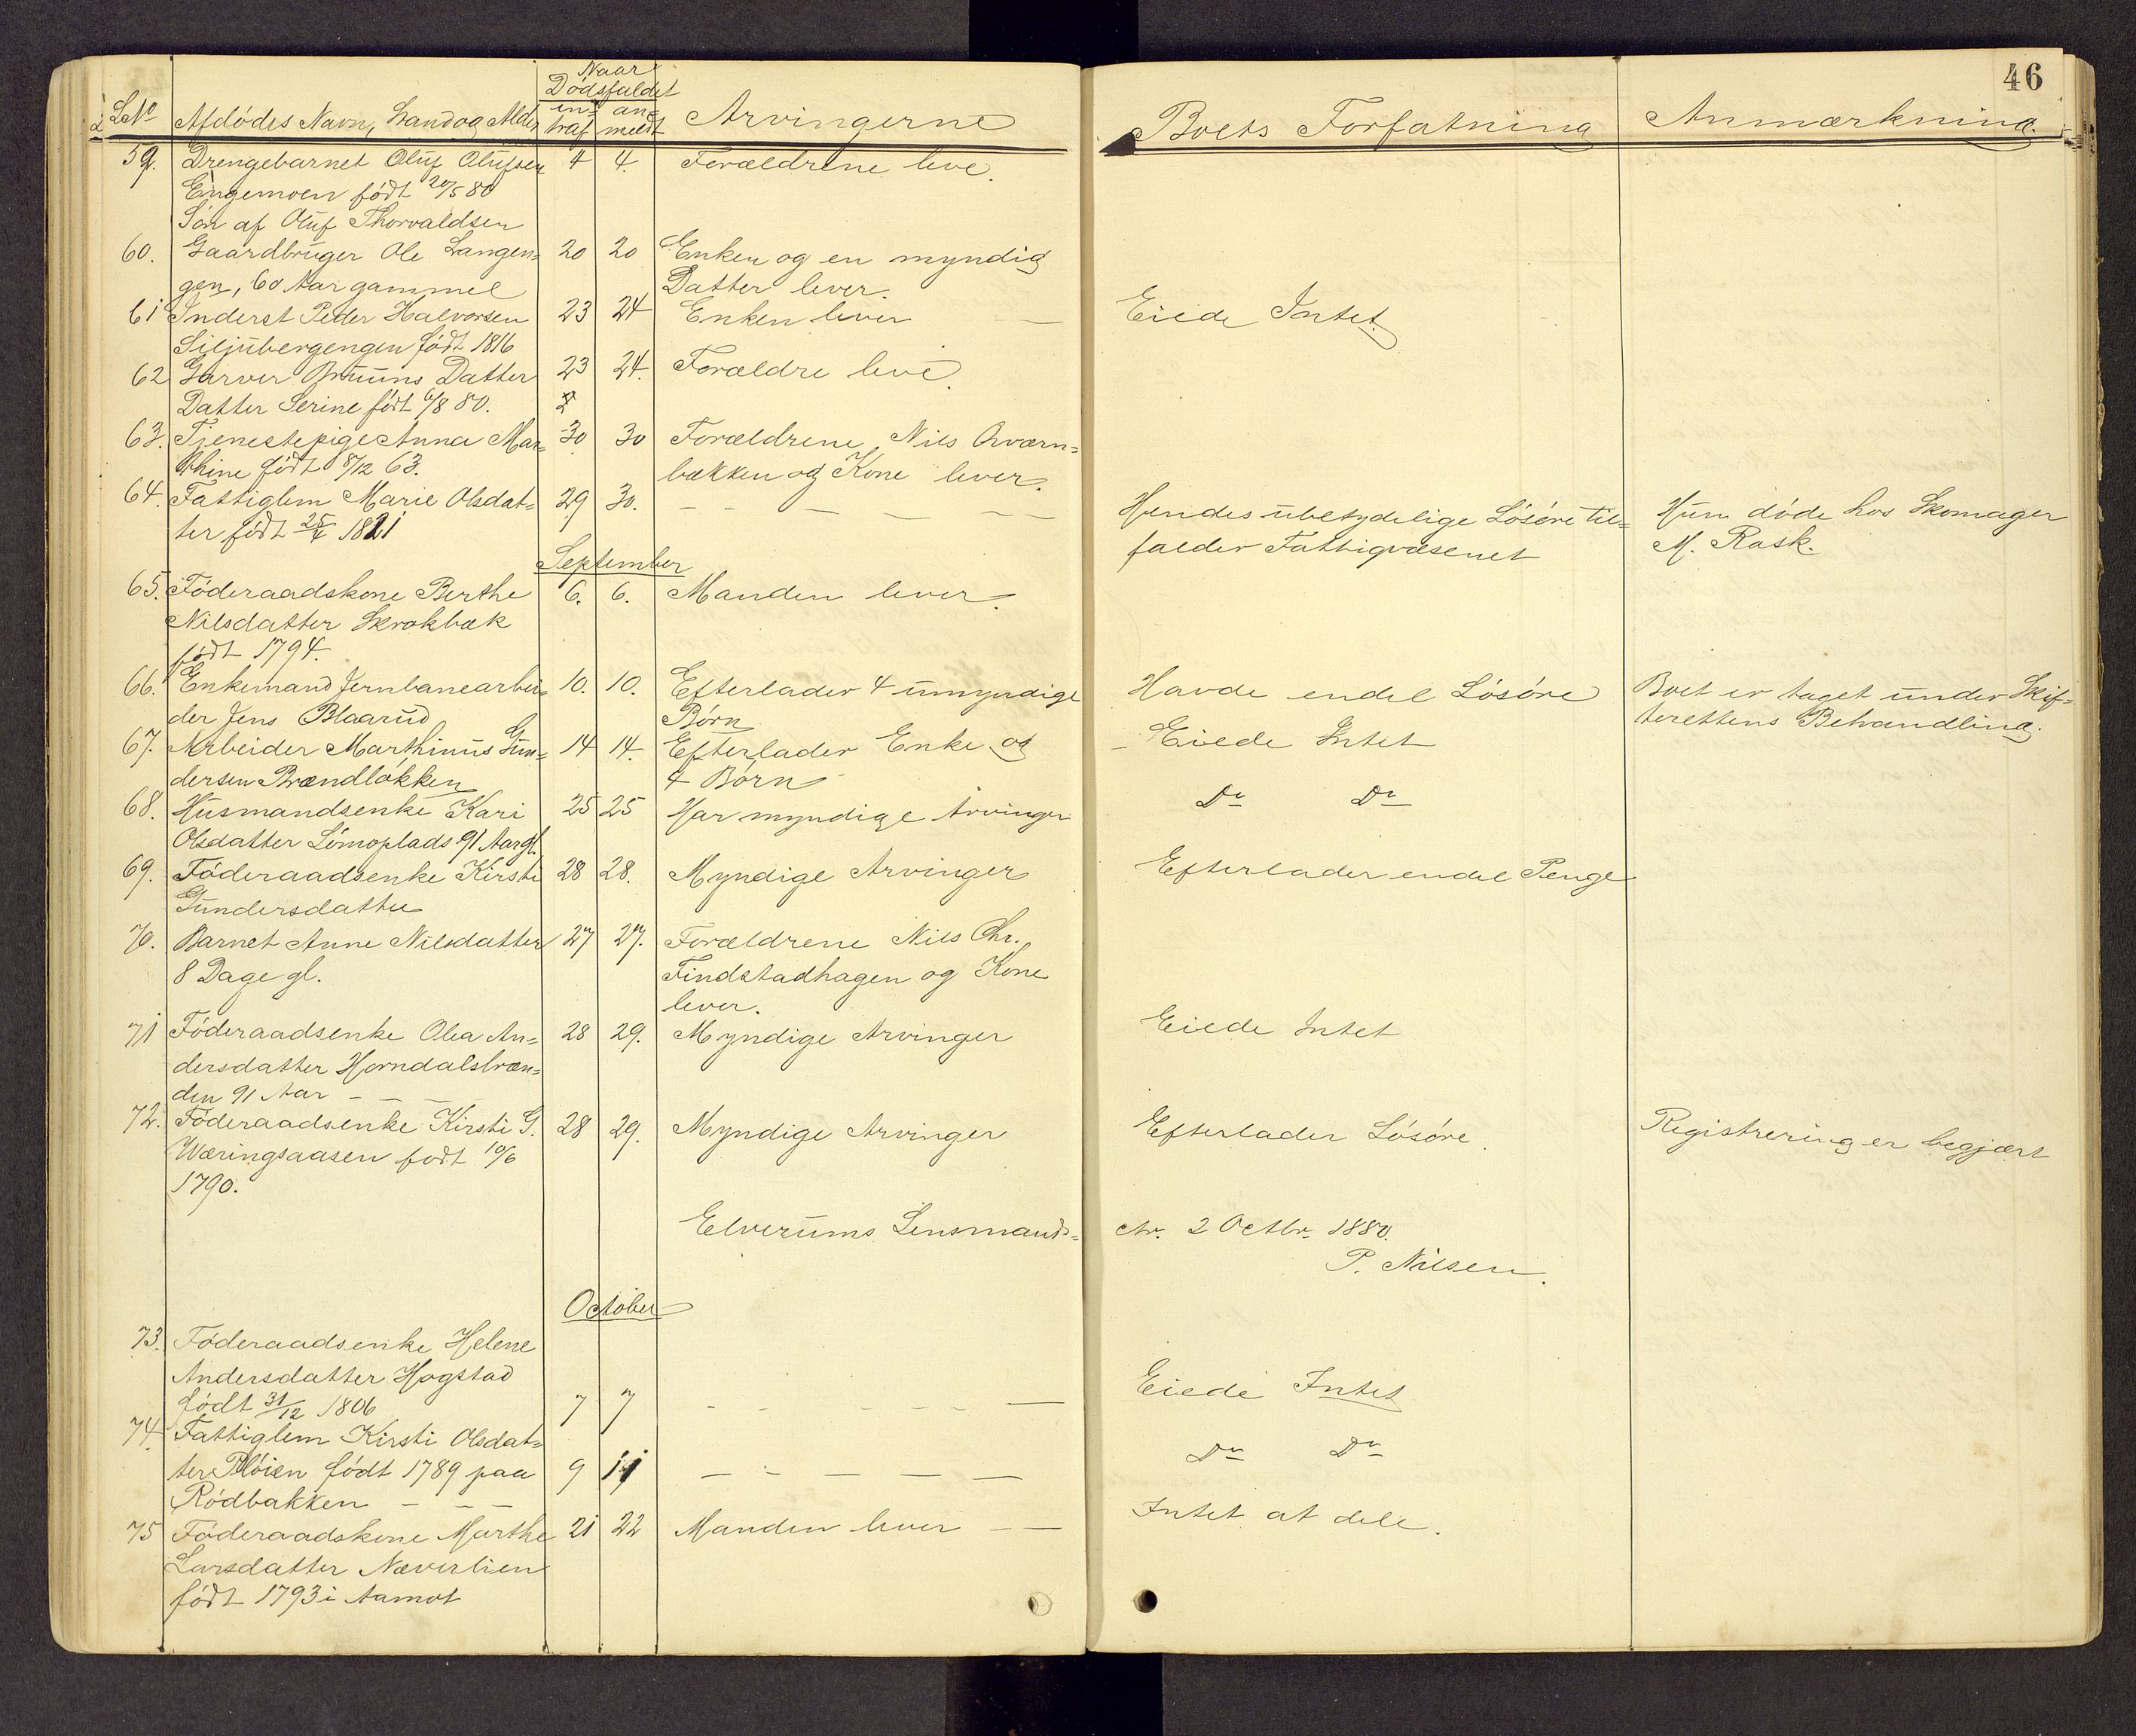 46
Naar
Dødsfaldet
L No Afdødes Navn, Stand og Alder ind- traf an- meldt Arvingerne Boets Forfatning Anmærkning.
59. Drengebarnet Oluf Olufsen 4 4. Forældrene leve.
Engemoen født 20/5 80
Søn af Oluf Thorvaldsen
60. Gaardbruger Ole Langen= 20 20 Enken og en myndig
gen, 60 Aar gammel Datter lever.
61 Inderst Peder Halvorsen 23 24 Enken lever — Eiede Intet
Siljubergengen født 1816
62 Garver Bruuns Datter 23 24. Forældre leve.
Datter Serine født 6/8 80.
63. Tjenestepige Anna Mar= 30 30 Forældrene, Nils Qværn=
thine født 8/12 63. bækken og Kone lever.
64. Fattiglem Marie Olsdat= 29 30. — — — — — Hendes ubetydelige Løsøre til= Hun døde hos Skomager
ter født 25/4 1821 falder Fattigvæsenet M. Rask.
September
65. Føderaadskone Berthe 6. 6. Manden lever.
Nilsdatter Skrokbæk
født 1794.
66. Enkemand Jernbanearbei= 10. 10. Efterlader 4 umyndige Havde endel Løsøre Boet er taget under Skif=
der Jens Blaarud Børn terettens Behandling.
67. Arbeider Marthinus Gun= 14 14. Efterlader Enke og Eiede Intet
dersen Brændløkken 4 Børn
68. Husmandsenke Kari 25 25 Har myndige Arvinger Do Do
Olsdatter Lømoplads 91 Aar gl.
69. Føderaadsenke Kirsti 28 28. Myndige Arvinger Efterlader endel Penge
Gundersdatter
70. Barnet Anne Nilsdatter 27 27. Forældrene Nils Chr.
8 Dage gl. Findstadhagen og Kone
lever.
71 Føderaadsenke Olea An= 28 29. Myndige Arvinger Eiede Intet
dersdatter Horndalsbræn=
den 91 Aar — — —
72. Føderaadsenke Kirsti G. 28 29. Myndige Arvinger Efterlader Løsøre. Registrering er begjært
Wæringsaasen født 10/6
1790.
Elverums Lensmands= ctr. 2 Octbr. 1880.
P. Nilsen.
October
73. Føderaadsenke Helene
Andersdatter Hagstad
født 31/12 1806 7 7 — — — — — Eiede Intet
74. Fattiglem Kirsti Olsdat=
ter Pløien født 1789 paa 9 11 — — — — — Do Do
Rødbakken — — —
75 Føderaadskone Marthe 21 22 Manden lever — — Intet at dele.
Larsdatter Næverlien
født 1793 i Aamot